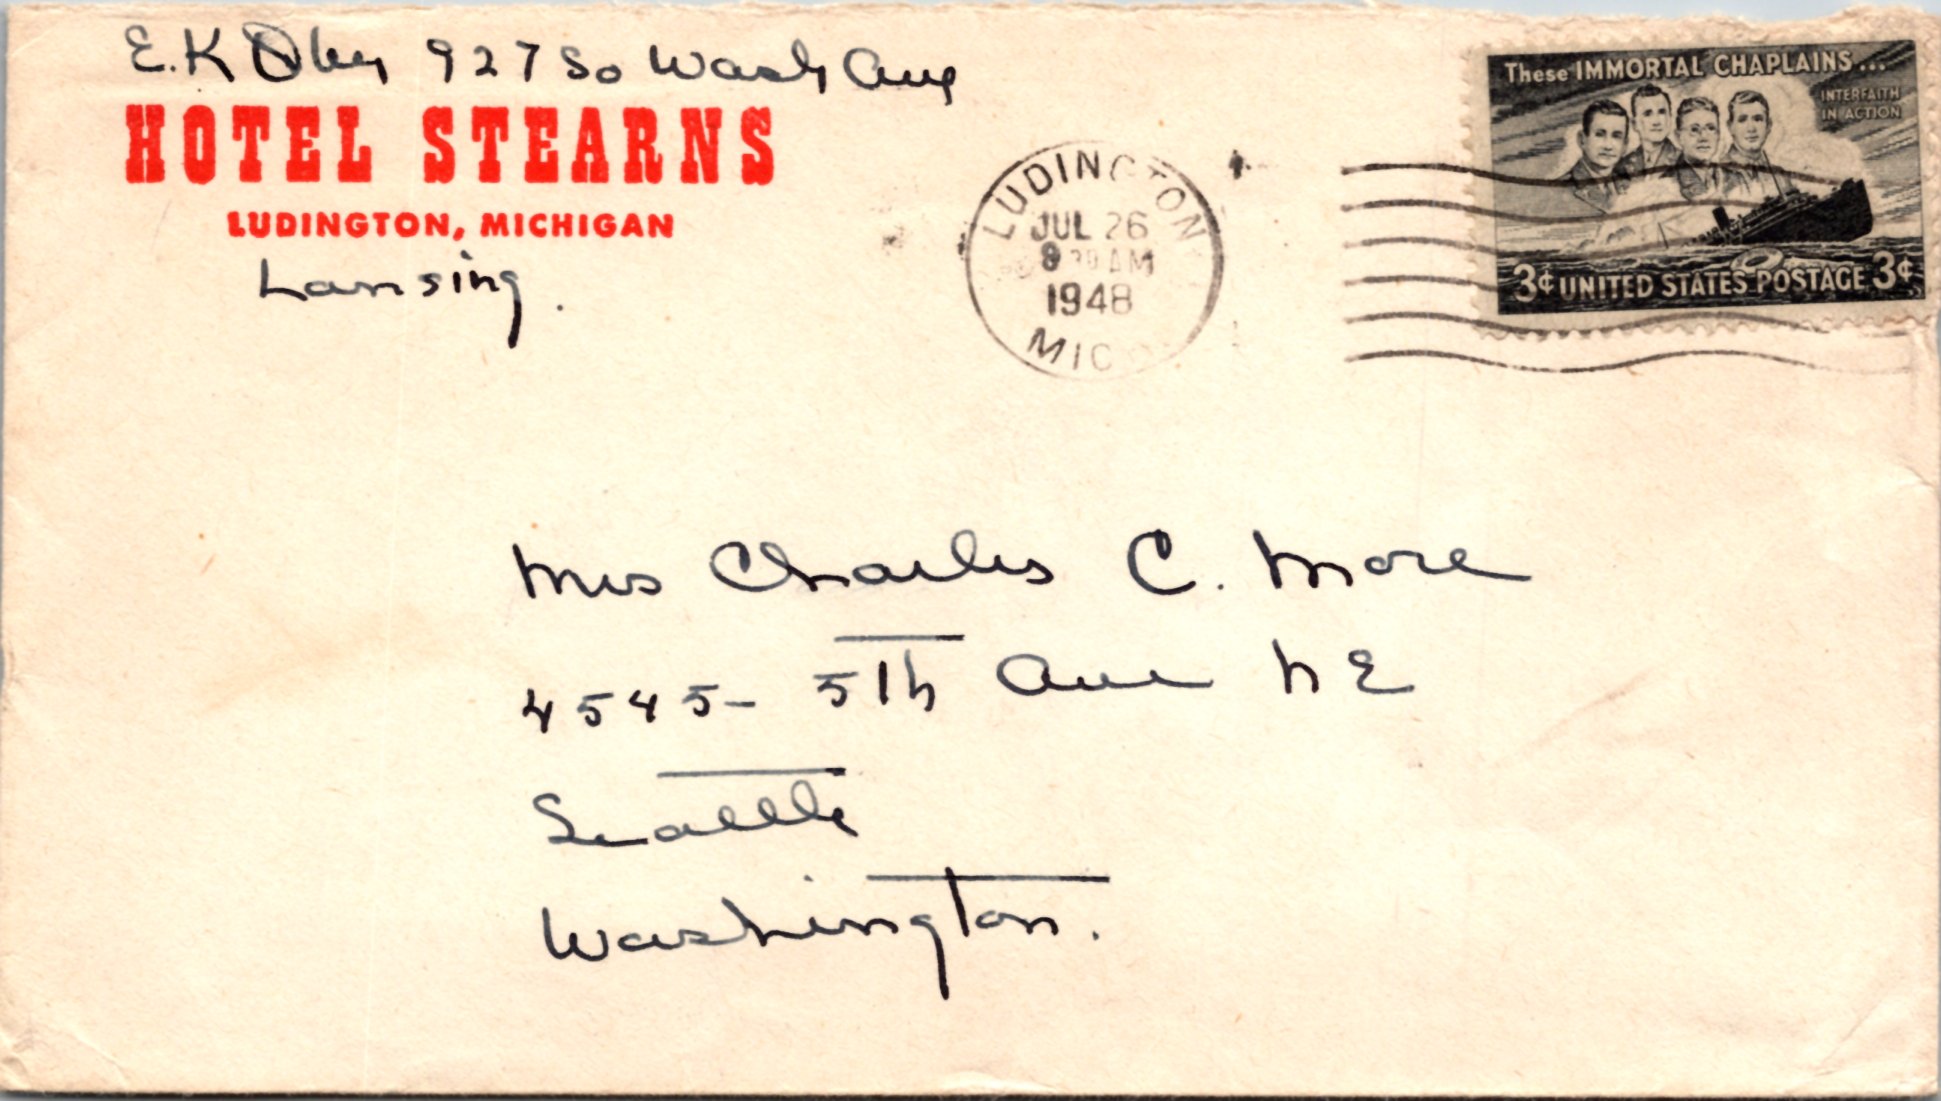 E.K 927 So Wash Ave
HOTEL STEARNS
LUDINGTON, MICHIGAN
Lansing.
LUDINGTON
JUL 26
AM
1948
MICH
These IMMORTAL CHAPLAINS...
INTERFAITH
IN ACTION
3¢ UNITED STATES POSTAGE 3¢
Mrs Charles C. More
4545- 5th Ave NE
Seattle
Washington.